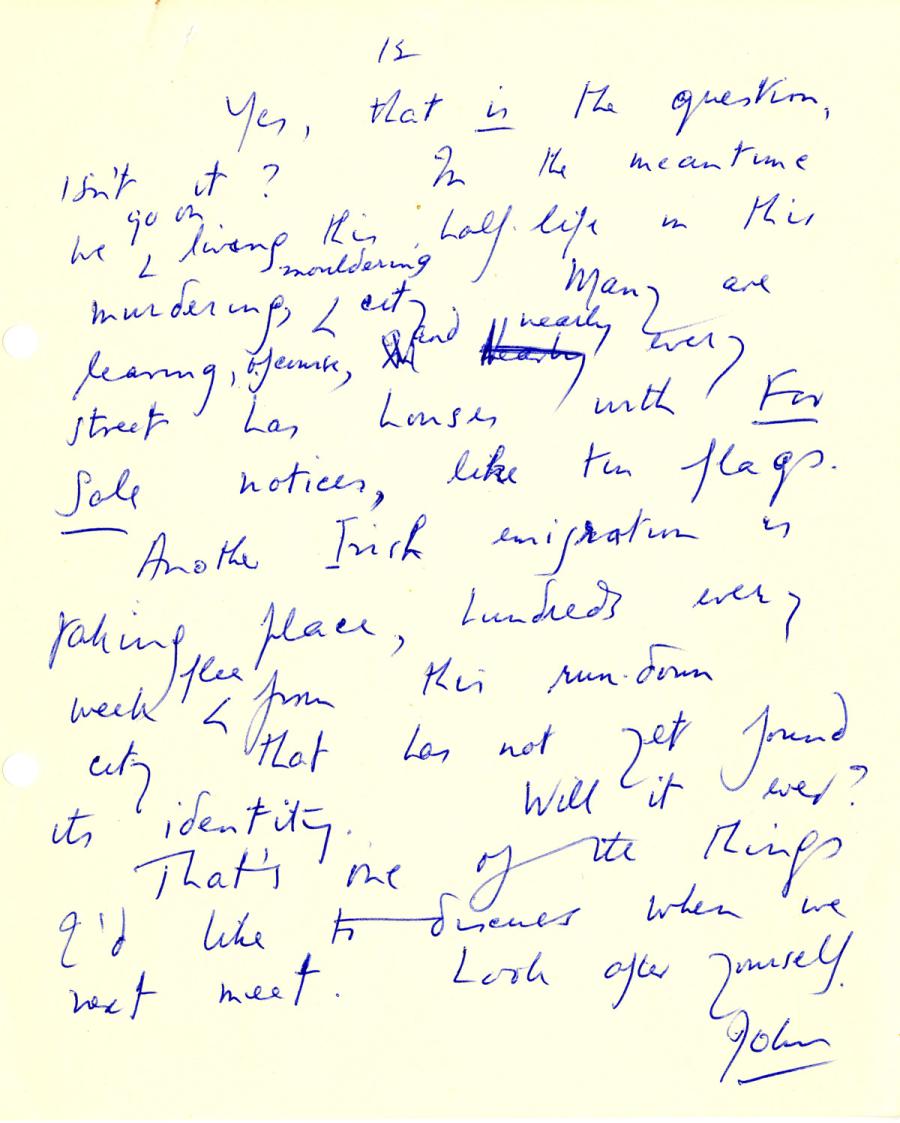 12
Yes, that is the question,
isn't it? In the meantime
we go on living this half-life in this
murdering, mouldering city. Many are
leaving, of course, and nearly every
street has houses with For
Sale notices, like tin flags.
Another Irish emigration is
taking place, hundreds every
week flee from this run-down
city that has not yet found
its identity. Will it ever?
That's one of the things
I'd like to discuss when we
next meet. Look after yourself.
John